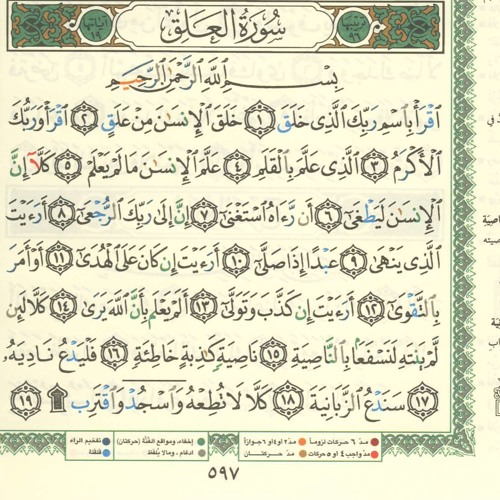 سُورَةُ العَلَقِ
ترتيبها ٩٦
آياتها ١٩
بِسْمِ ٱللَّهِ ٱلرَّحْمَٰنِ ٱلرَّحِيمِ
ٱقْرَأْ بِٱسْمِ رَبِّكَ ٱلَّذِى خَلَقَ ١ خَلَقَ ٱلْإِنسَٰنَ مِنْ عَلَقٍ ٢ ٱقْرَأْ وَرَبُّكَ
ٱلْأَكْرَمُ ٣ ٱلَّذِى عَلَّمَ بِٱلْقَلَمِ ٤ عَلَّمَ ٱلْإِنسَٰنَ مَا لَمْ يَعْلَمْ ٥ كَلَّآ إِنَّ
ٱلْإِنسَٰنَ لَيَطْغَىٰٓ ٦ أَن رَّءَاهُ ٱسْتَغْنَىٰٓ ٧ إِنَّ إِلَىٰ رَبِّكَ ٱلرُّجْعَىٰٓ ٨ أَرَءَيْتَ
ٱلَّذِى يَنْهَىٰ ٩ عَبْدًا إِذَا صَلَّىٰٓ ١٠ أَرَءَيْتَ إِن كَانَ عَلَى ٱلْهُدَىٰٓ ١١ أَوْ أَمَرَ
بِٱلتَّقْوَىٰٓ ١٢ أَرَءَيْتَ إِن كَذَّبَ وَتَوَلَّىٰٓ ١٣ أَلَمْ يَعْلَم بِأَنَّ ٱللَّهَ يَرَىٰ ١٤ كَلَّا لَئِن
لَّمْ يَنتَهِ لَنَسْفَعًۢا بِٱلنَّاصِيَةِ ١٥ نَاصِيَةٍ كَٰذِبَةٍ خَاطِئَةٍ ١٦ فَلْيَدْعُ نَادِيَهُۥ
١٧ سَنَدْعُ ٱلزَّبَانِيَةَ ١٨ كَلَّا لَا تُطِعْهُ وَٱسْجُدْ وَٱقْتَرِب ۩ ١٩
مدّ ٦ حركات لزوماً مدّ ٢ او ٤ او ٦ جوازاً إخفاء، ومواقع الغُنَّة (حركتان) تفخيم الراء
مدّ واجب ٤ او ٥ حركات مدّ حركتان ادغام، وما لا يُلفَظ قلقلة
٥٩٧